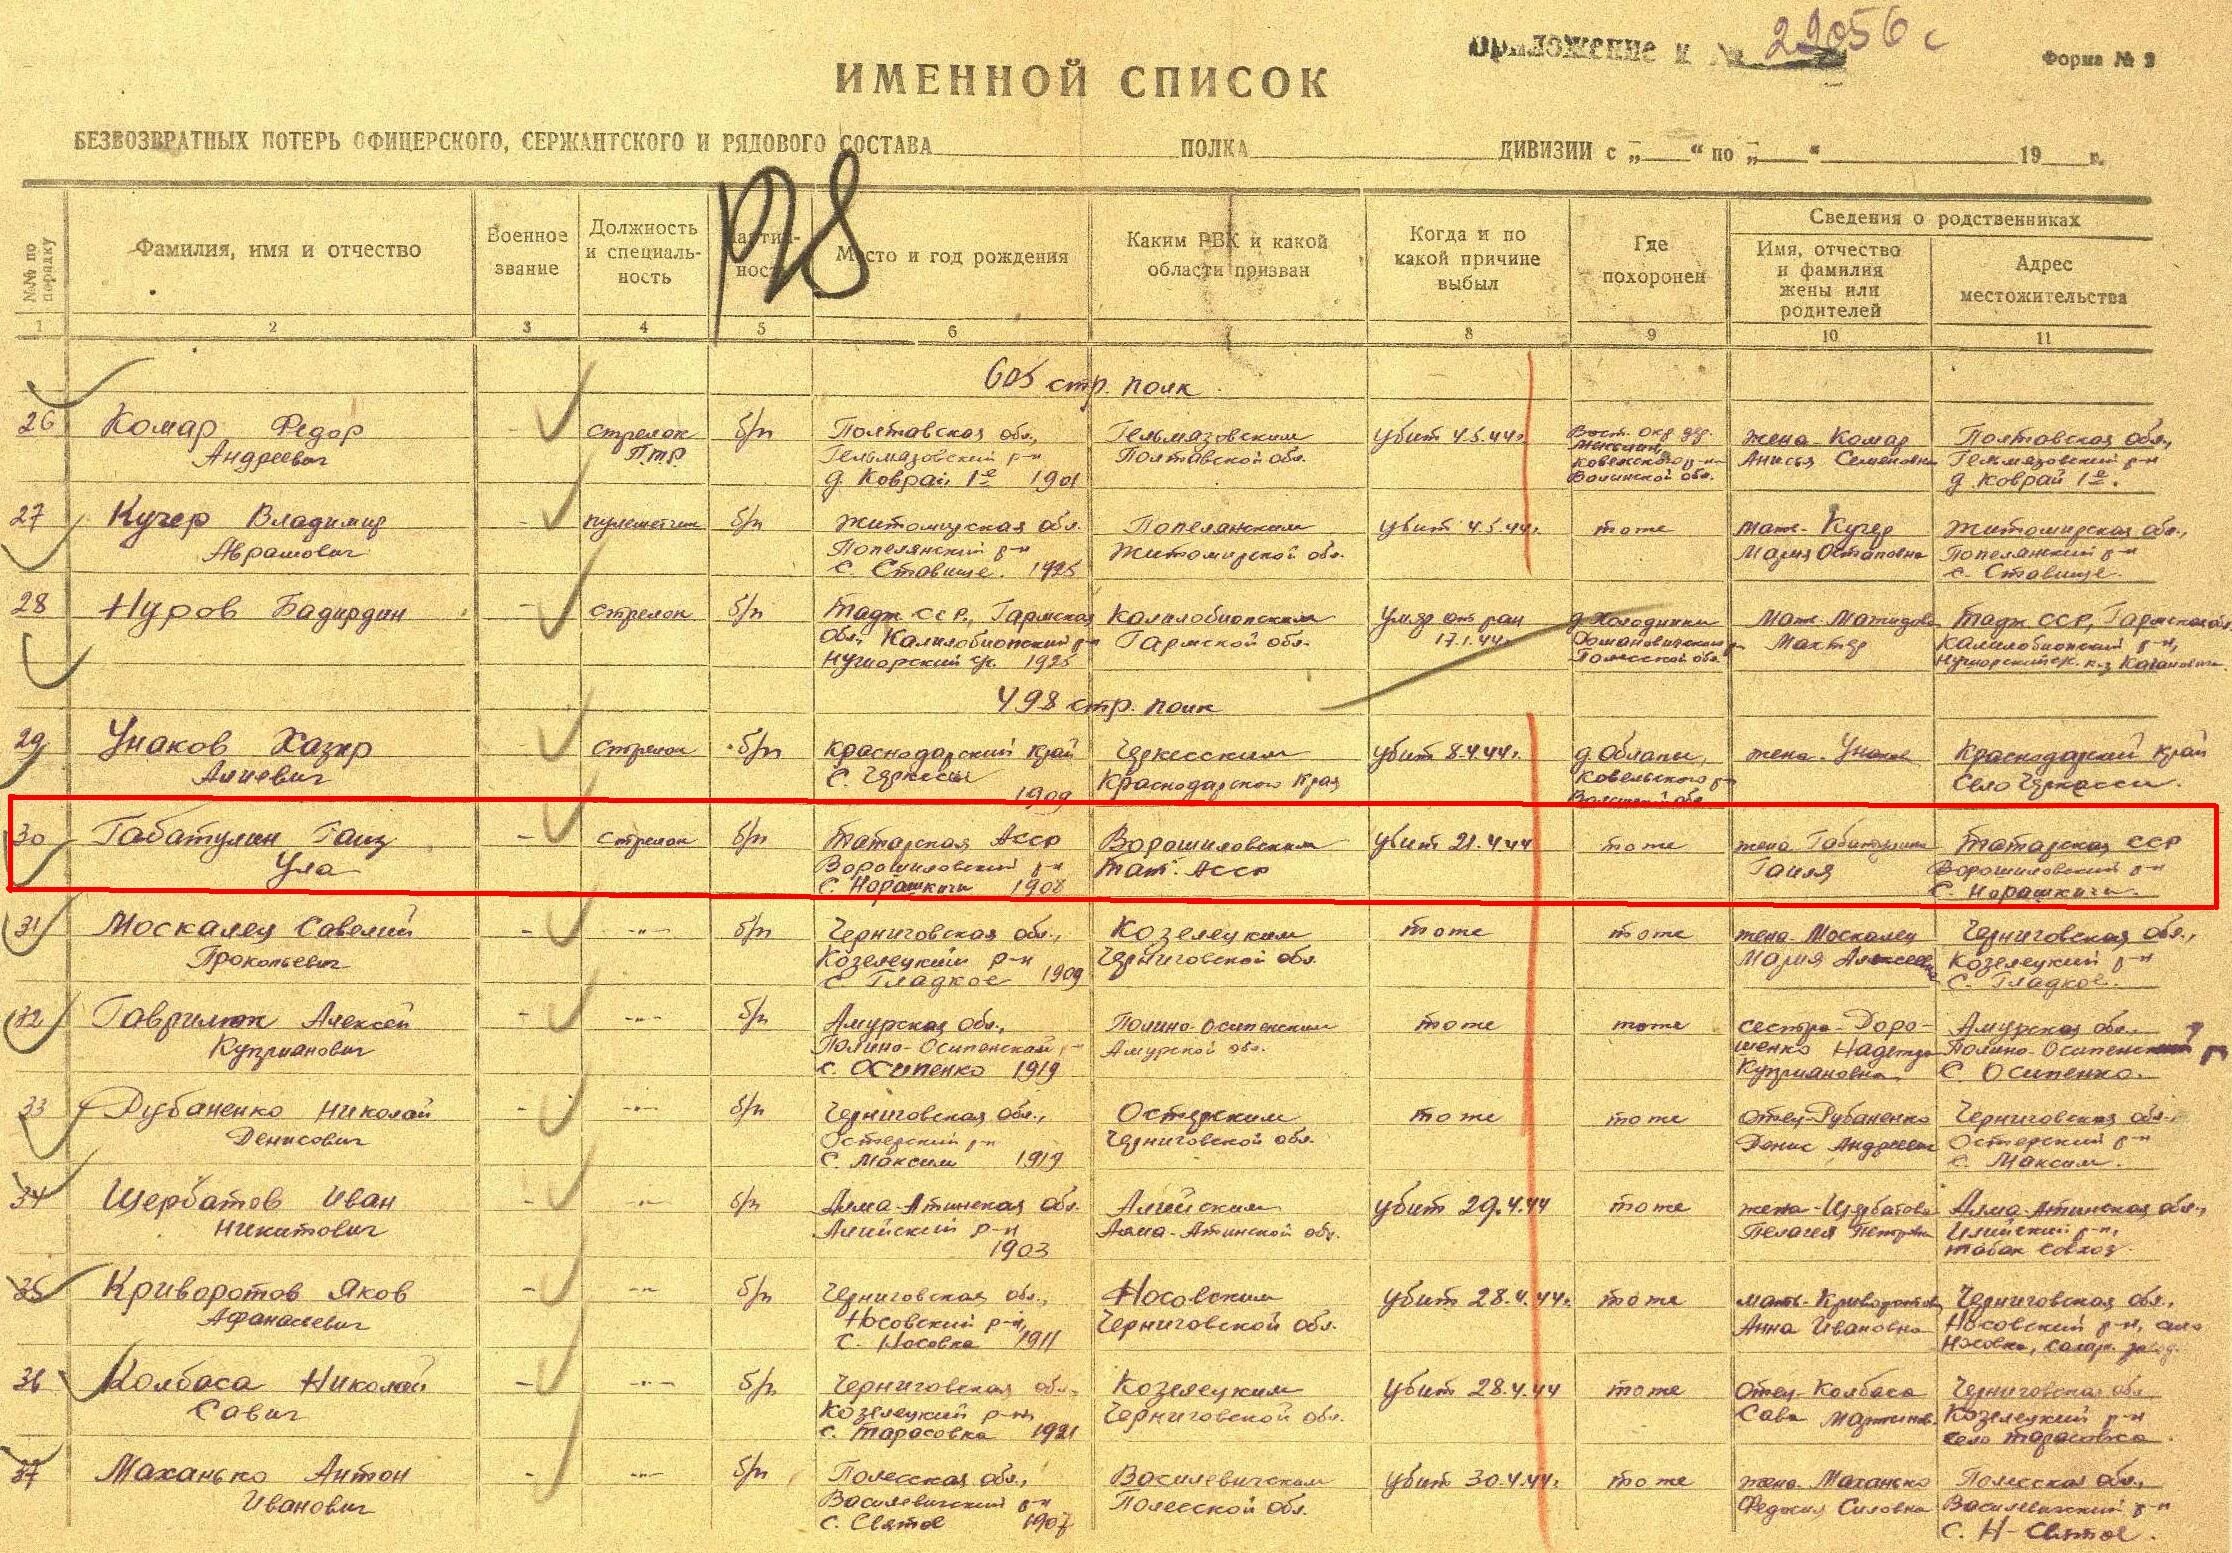 Приложение к № 29056 с
Форма № 2
ИМЕННОЙ СПИСОК
БЕЗВОЗВРАТНЫХ ПОТЕРЬ ОФИЦЕРСКОГО, СЕРЖАНТСКОГО И РЯДОВОГО СОСТАВА ПОЛКА ДИВИЗИИ с „ “ по „ “ 19 г.
128
№№ по порядку
Фамилия, имя и отчество
Военное звание
Должность и специаль-ность
Место и год рождения
Каким РВК и какой области призван
Когда и по какой причине выбыл
Где похоронен
Сведения о родственниках
Имя, отчество и фамилия жены или родителей
Адрес местожительства
1 2 3 4 5 6 7 8 9 10 11
605 стр. полк
26 Комар Федор - стрелок б/п Полтавская обл., Гельмязовским убит 4.5.44г. жена-Комар Полтавская обл.,
Андреевич ПТР Гельмязовский р-н Полтавской обл. Ковельского р-н Анисья Семеновна Гельмязовский р-н
д. Коврай 1е 1901 Волынской обл. д. Коврай 1е.
27 Кучер Владимир - пулеметчик б/п Житомирская обл. Попелянским убит 4.5.44г. тоже мать-Кучер Житомирская обл.,
Аврамович Попелянский р-н Житомирской обл. Мария Остаповна Попелянский р-н
с. Ставище. 1925 с. Ставище.
28 Нуров Бадирдин - стрелок б/п Тадж ССР, Гармская Калилобиопским умер от ран д. Холодники Мать Тадж ССР, Гармская обл.
обл., Калилобиопский р-н Гармской обл. 17.1.44г. Полесской обл. Калилобиопский р-н,
1925
498 стр. полк
29 Унаков Хазир - стрелок б/п Краснодарский край Черкесским убит 8.4.44г. д. Облапы, жена-Унаков Краснодарский край
Алиевич с. Черкессы Краснодарского края Ковельского р-н Село Черкесси.
1909 Волынской обл.
30 Габатулин Гаиз - стрелок б/п Татарская АССР Ворошиловским убит 21.4.44 тоже жена Габатулина Татарская ССР
Ула Ворошиловский р-н Тат. АССР Галия Ворошиловский р-н
с. Норашкичи 1908 с. Норашкичи.
31 Москалец Савелий - -"- б/п Черниговская обл., Козелецким тоже тоже жена-Москалец Черниговская обл.,
Прокопьевич Козелецкий р-н Черниговской обл. Мария Алексеевна Козелецкий р-н
с. Гладкое 1909 с. Гладкое.
32 Гаврилюк Алексей - -"- б/п Амурская обл., Полино-Осипенским тоже тоже сестра-Доро- Амурская обл.
Куприанович Полино-Осипенский р-н Амурской обл. шенко Надежда Полино-Осипенский р
с. Осипенко 1919 Куприановна с. Осипенко.
33 Рубаненко Николай - -"- б/п Черниговская обл., Остерским тоже тоже отец-Рубаненко Черниговская обл.,
Денисович Остерский р-н Черниговской обл. Денис Андреевич Остерский р-н
с. Максим 1919 с. Максим.
34 Щербатов Иван - -"- б/п Алма-Атинская обл. Алийским убит 29.4.44 тоже жена-Щербатова Алма-Атинская обл.,
Никитович Алийский р-н Алма-Атинской обл. Пелагея Петровна Илийский р-н,
1903 табак совхоз.
35 Криворотов Яков -"- б/п Черниговская обл., Носовским убит 28.4.44г. тоже мать-Криворотова Черниговская обл.,
Афанасьевич Носовский р-н, Черниговской обл. Анна Ивановна Носовский р-н, село
с. Носовка 1911 Носовка, сахар. завод.
36 Колбаса Николай - -"- б/п Черниговская обл. Козелецким убит 28.4.44 тоже отец-Колбаса Черниговская обл
Савич Козелецкий р-н, Черниговской обл. Сава Мартинов. Козелецкий р-н
с. Тарасовка 1921 село Тарасовка.
37 Маханько Антон - -"- б/п Полесская обл., Василевичским убит 30.4.44г. тоже жена-Маханько Полесская обл.,
Иванович Василевичский р-н Полесской обл. Федосия Силовна Василевичский р-н
с. Святое 1907 с. Н-Святое.